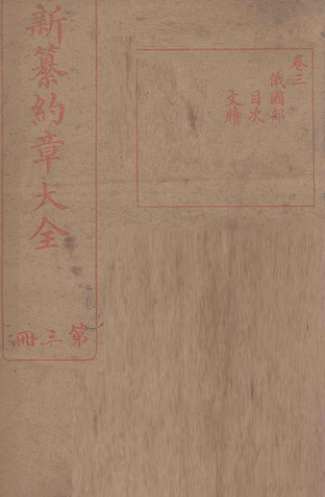 卷三
俄國部
目次
文牘
新纂約章大全
第三冊